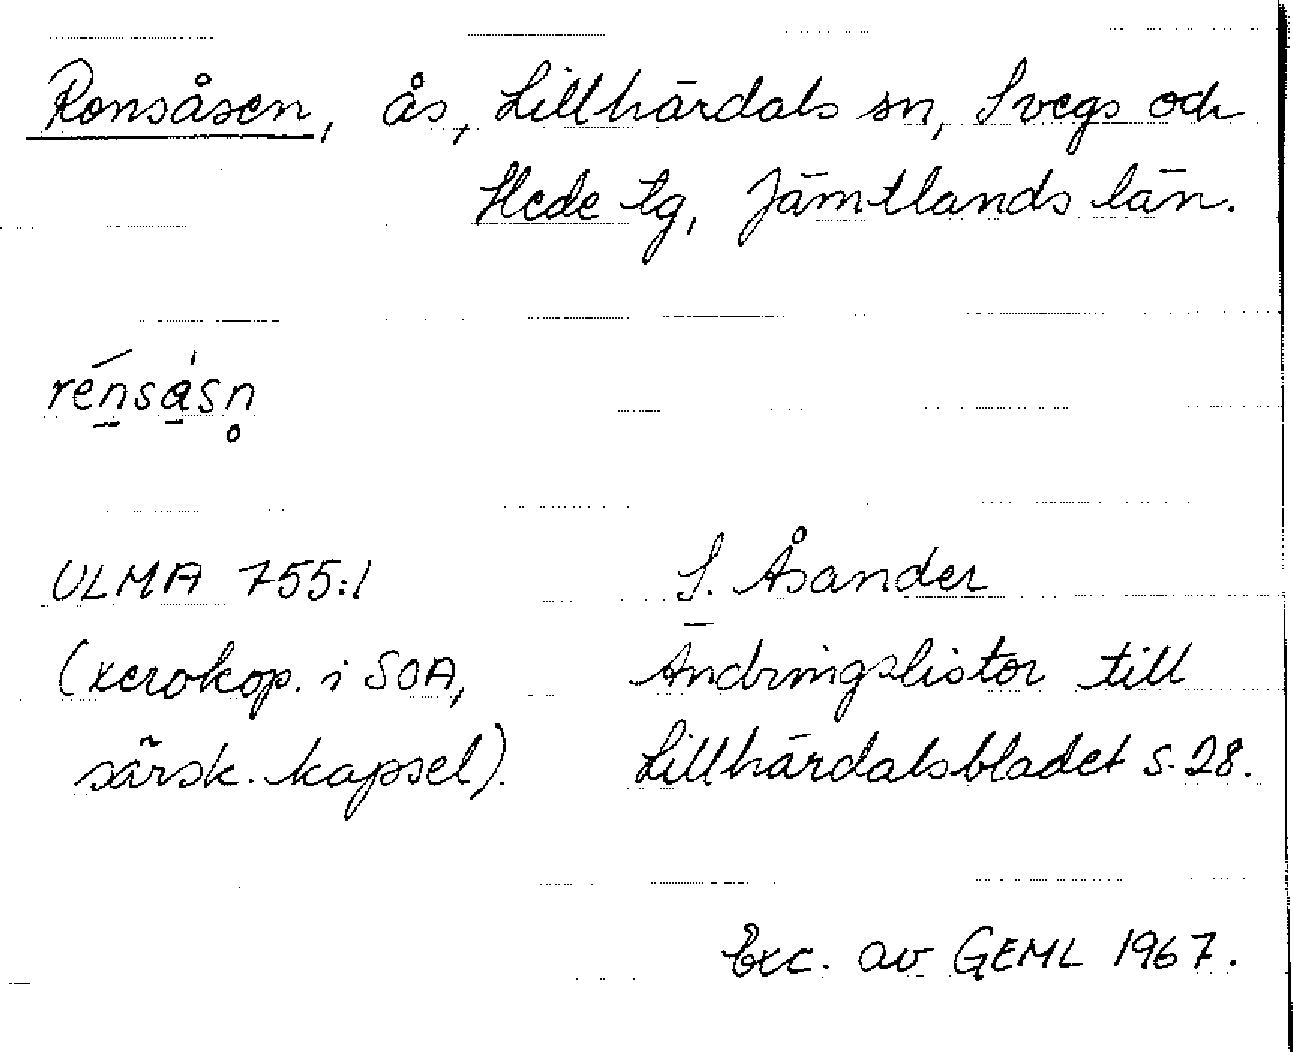 Rensåsen, ås, Lillhärdals sn, Svegs och
Hede tg, Jämtlands län.
rénsåsn̥
ULMA 755:1
S. Åsander
(xerokop. i SOA,
Ändringslistor till
särsk. kapsel).
Lillhärdalsbladet s. 28.
Exc. av GEML 1967.